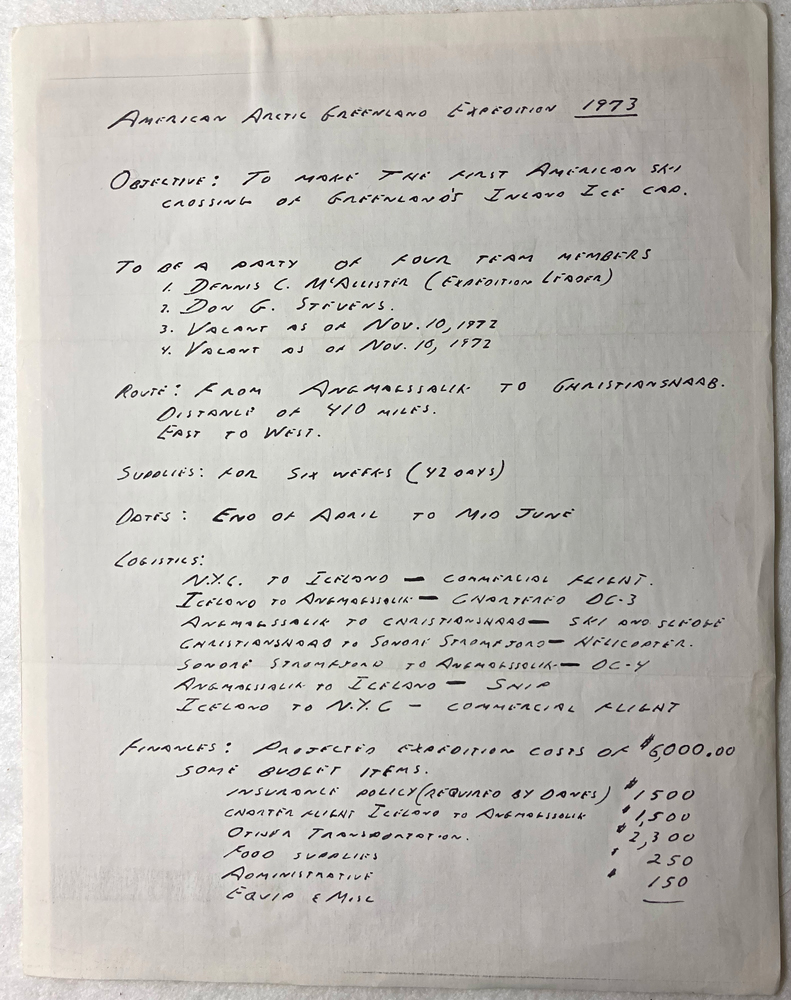 AMERICAN ARCTIC GREENLAND EXPEDITION 1973
OBJECTIVE: TO MAKE THE FIRST AMERICAN SKI
CROSSING OF GREENLAND'S INLAND ICE CAP.
TO BE A PARTY OF FOUR TEAM MEMBERS
1. DENNIS C. McALLISTER (EXPEDITION LEADER)
2. DON G. STEVENS.
3. VACANT AS OF NOV. 10, 1972
4. VACANT AS OF NOV. 10, 1972
ROUTE: FROM ANGMAGSSALIK TO CHRISTIANSHAAB.
DISTANCE OF 410 MILES.
EAST TO WEST.
SUPPLIES: FOR SIX WEEKS (42 DAYS)
DATES: END OF APRIL TO MID JUNE
LOGISTICS:
N.Y.C. TO ICELAND — COMMERCIAL FLIGHT.
ICELAND TO ANGMAGSSALIK — CHARTERED DC-3
ANGMAGSSALIK TO CHRISTIANSHAAB — SKI AND SLEDGE
CHRISTIANSHAAB TO SONDRE STROMFJORD — HELICOPTER.
SONDRE STROMFJORD TO ANGMAGSSALIK — DC-4
ANGMAGSSALIK TO ICELAND — SHIP
ICELAND TO N.Y.C — COMMERCIAL FLIGHT
FINANCES: PROJECTED EXPEDITION COSTS OF $6,000.00
SOME BUDGET ITEMS.
INSURANCE POLICY (REQUIRED BY DANES) $1500
CHARTER FLIGHT ICELAND TO ANGMAGSSALIK $1,500
OTHER TRANSPORTATION. $2,300
FOOD SUPPLIES $ 250
ADMINISTRATIVE $ 150
EQUIP & MISC